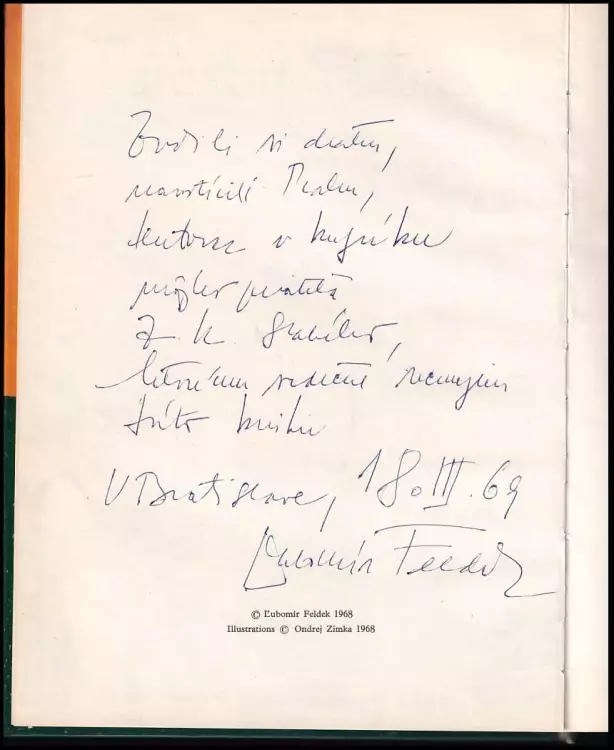 Zvolili si dráhu,
navštívili Prahu,
v kufríku
môjho priateľa
Z. K. Slabého,
ktorému srdečne venujem
túto knihu
V Bratislave, 18. III. 69
Ľubomír Feldek
© Ľubomír Feldek 1968
Illustrations © Ondrej Zimka 1968